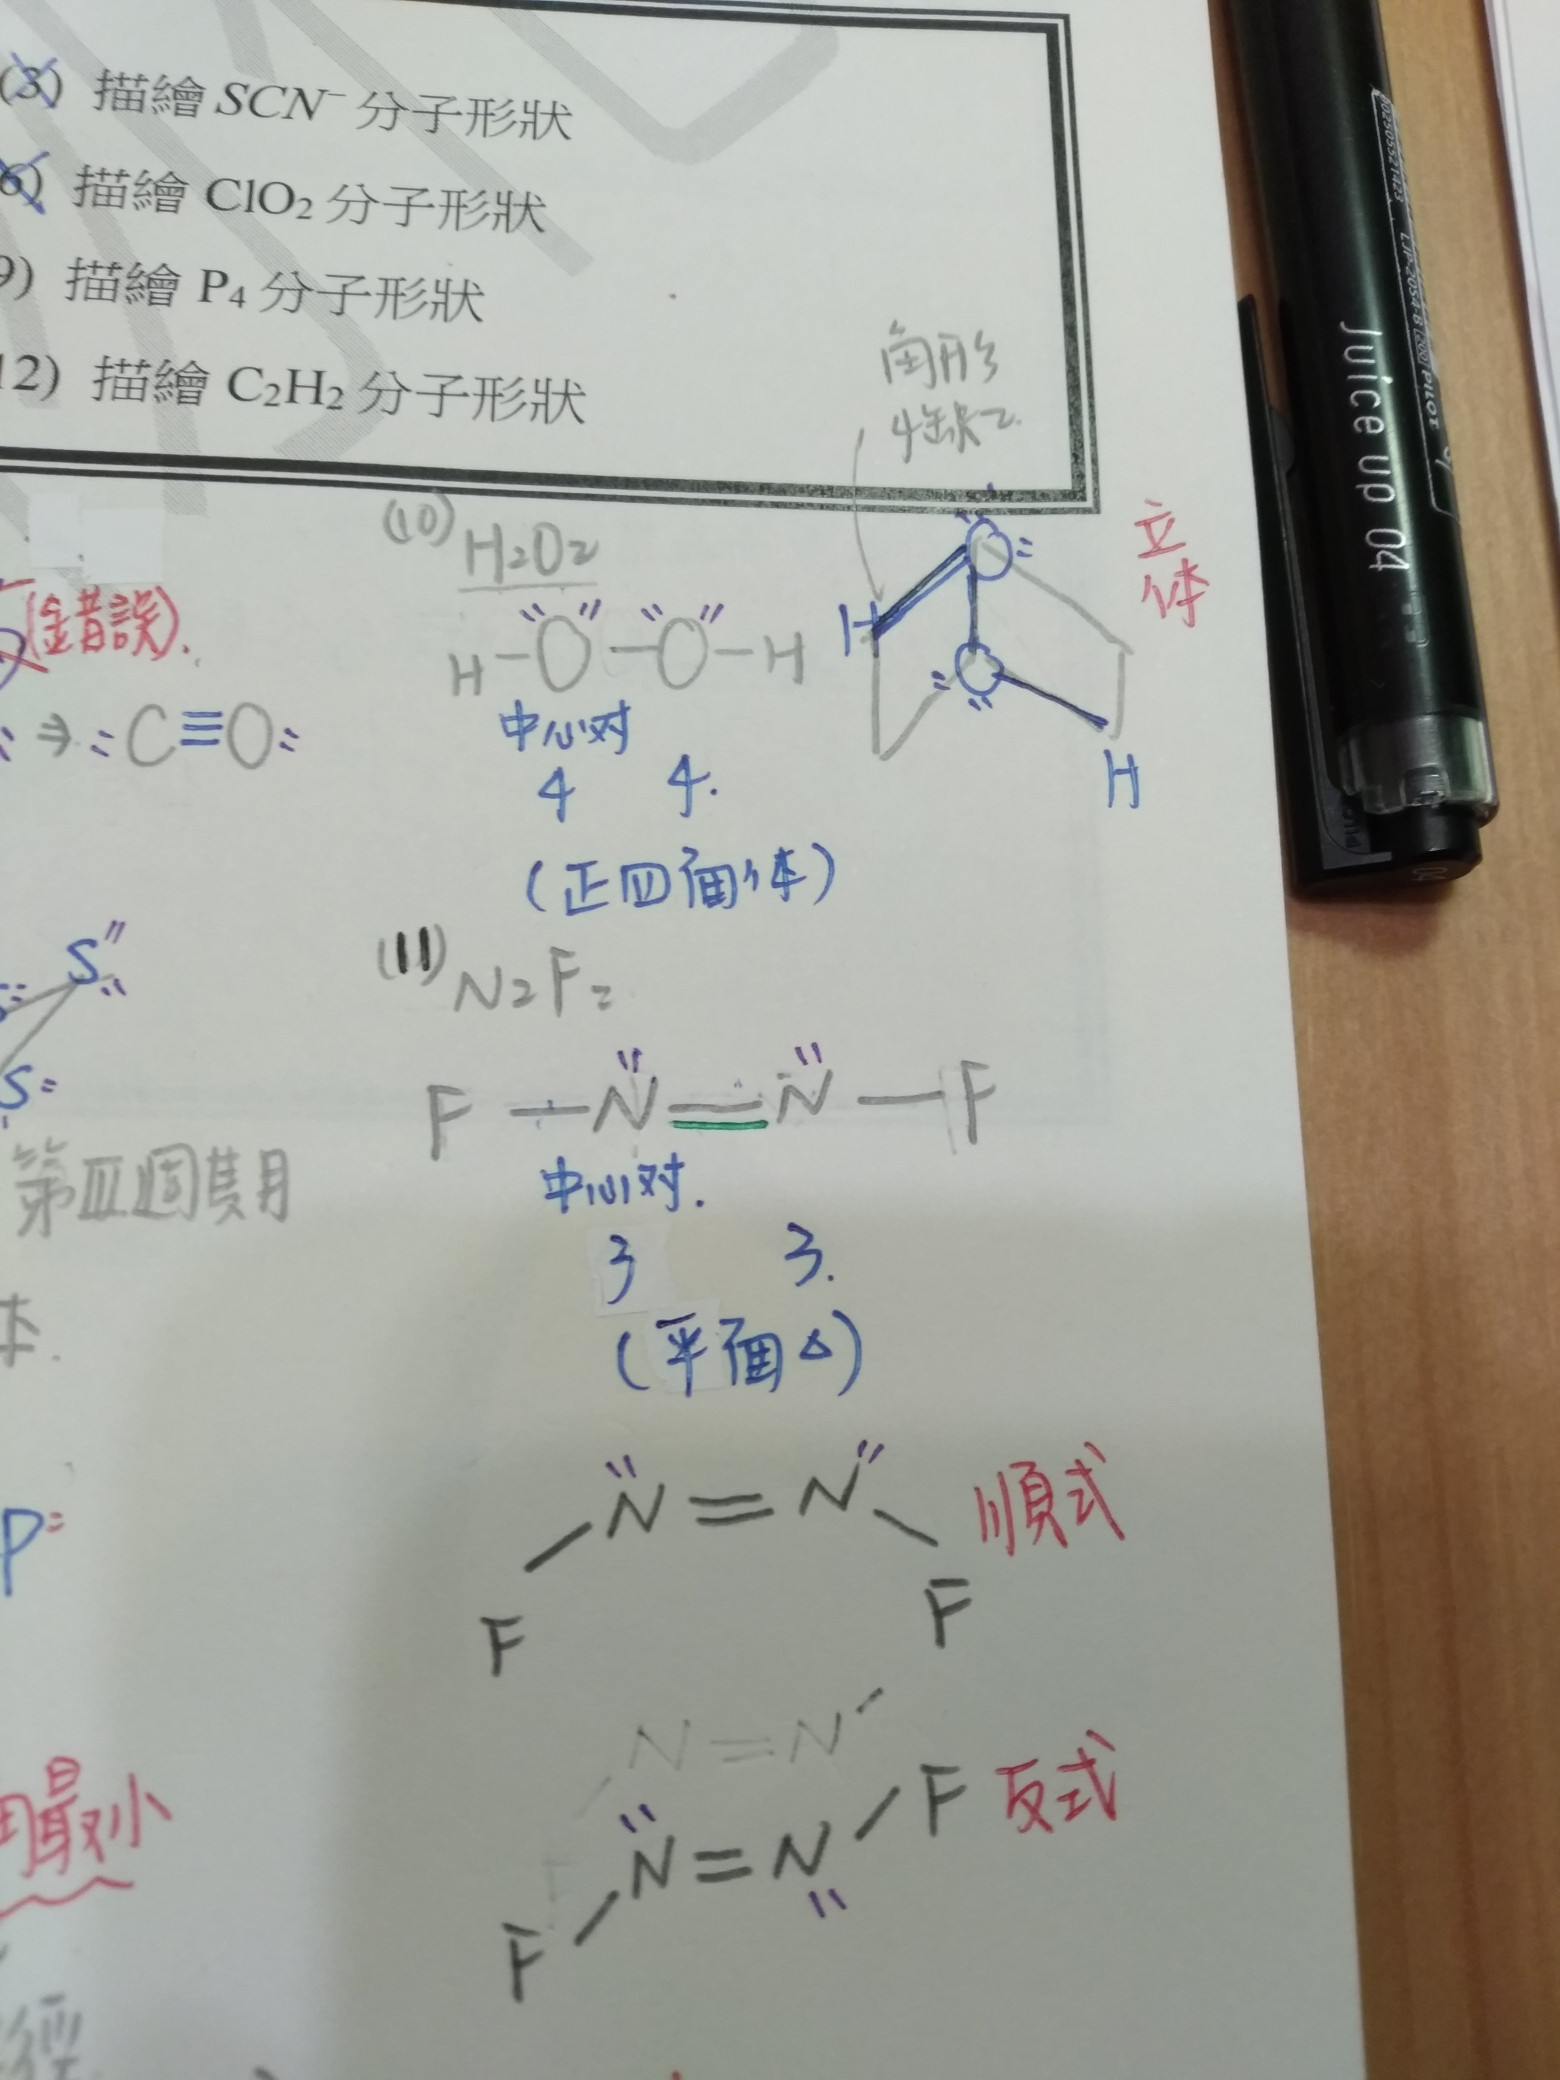 (3) 描繪 SCN⁻ 分子形狀
6) 描繪 ClO₂ 分子形狀
9) 描繪 P₄ 分子形狀
12) 描繪 C₂H₂ 分子形狀
角形
4缺2.
(10) H₂O₂
H-O-O-H
中心对
4 4.
(正四面体)
H O O H
立体
(錯誤).
⇒ :C≡O:
S
S
第三週期
P
最小
(11) N₂F₂
F-N=N-F
中心对.
3 3.
(平面△)
F N=N F 順式
N=N
F N=N F 反式
Juice up 04
PILOT